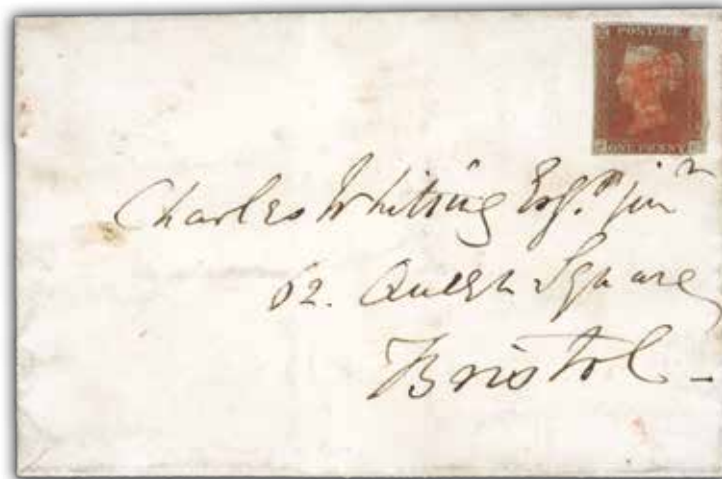 POSTAGE
ONE PENNY
Charles Whiting Esqr. junr
62. Queen Square
Bristol -